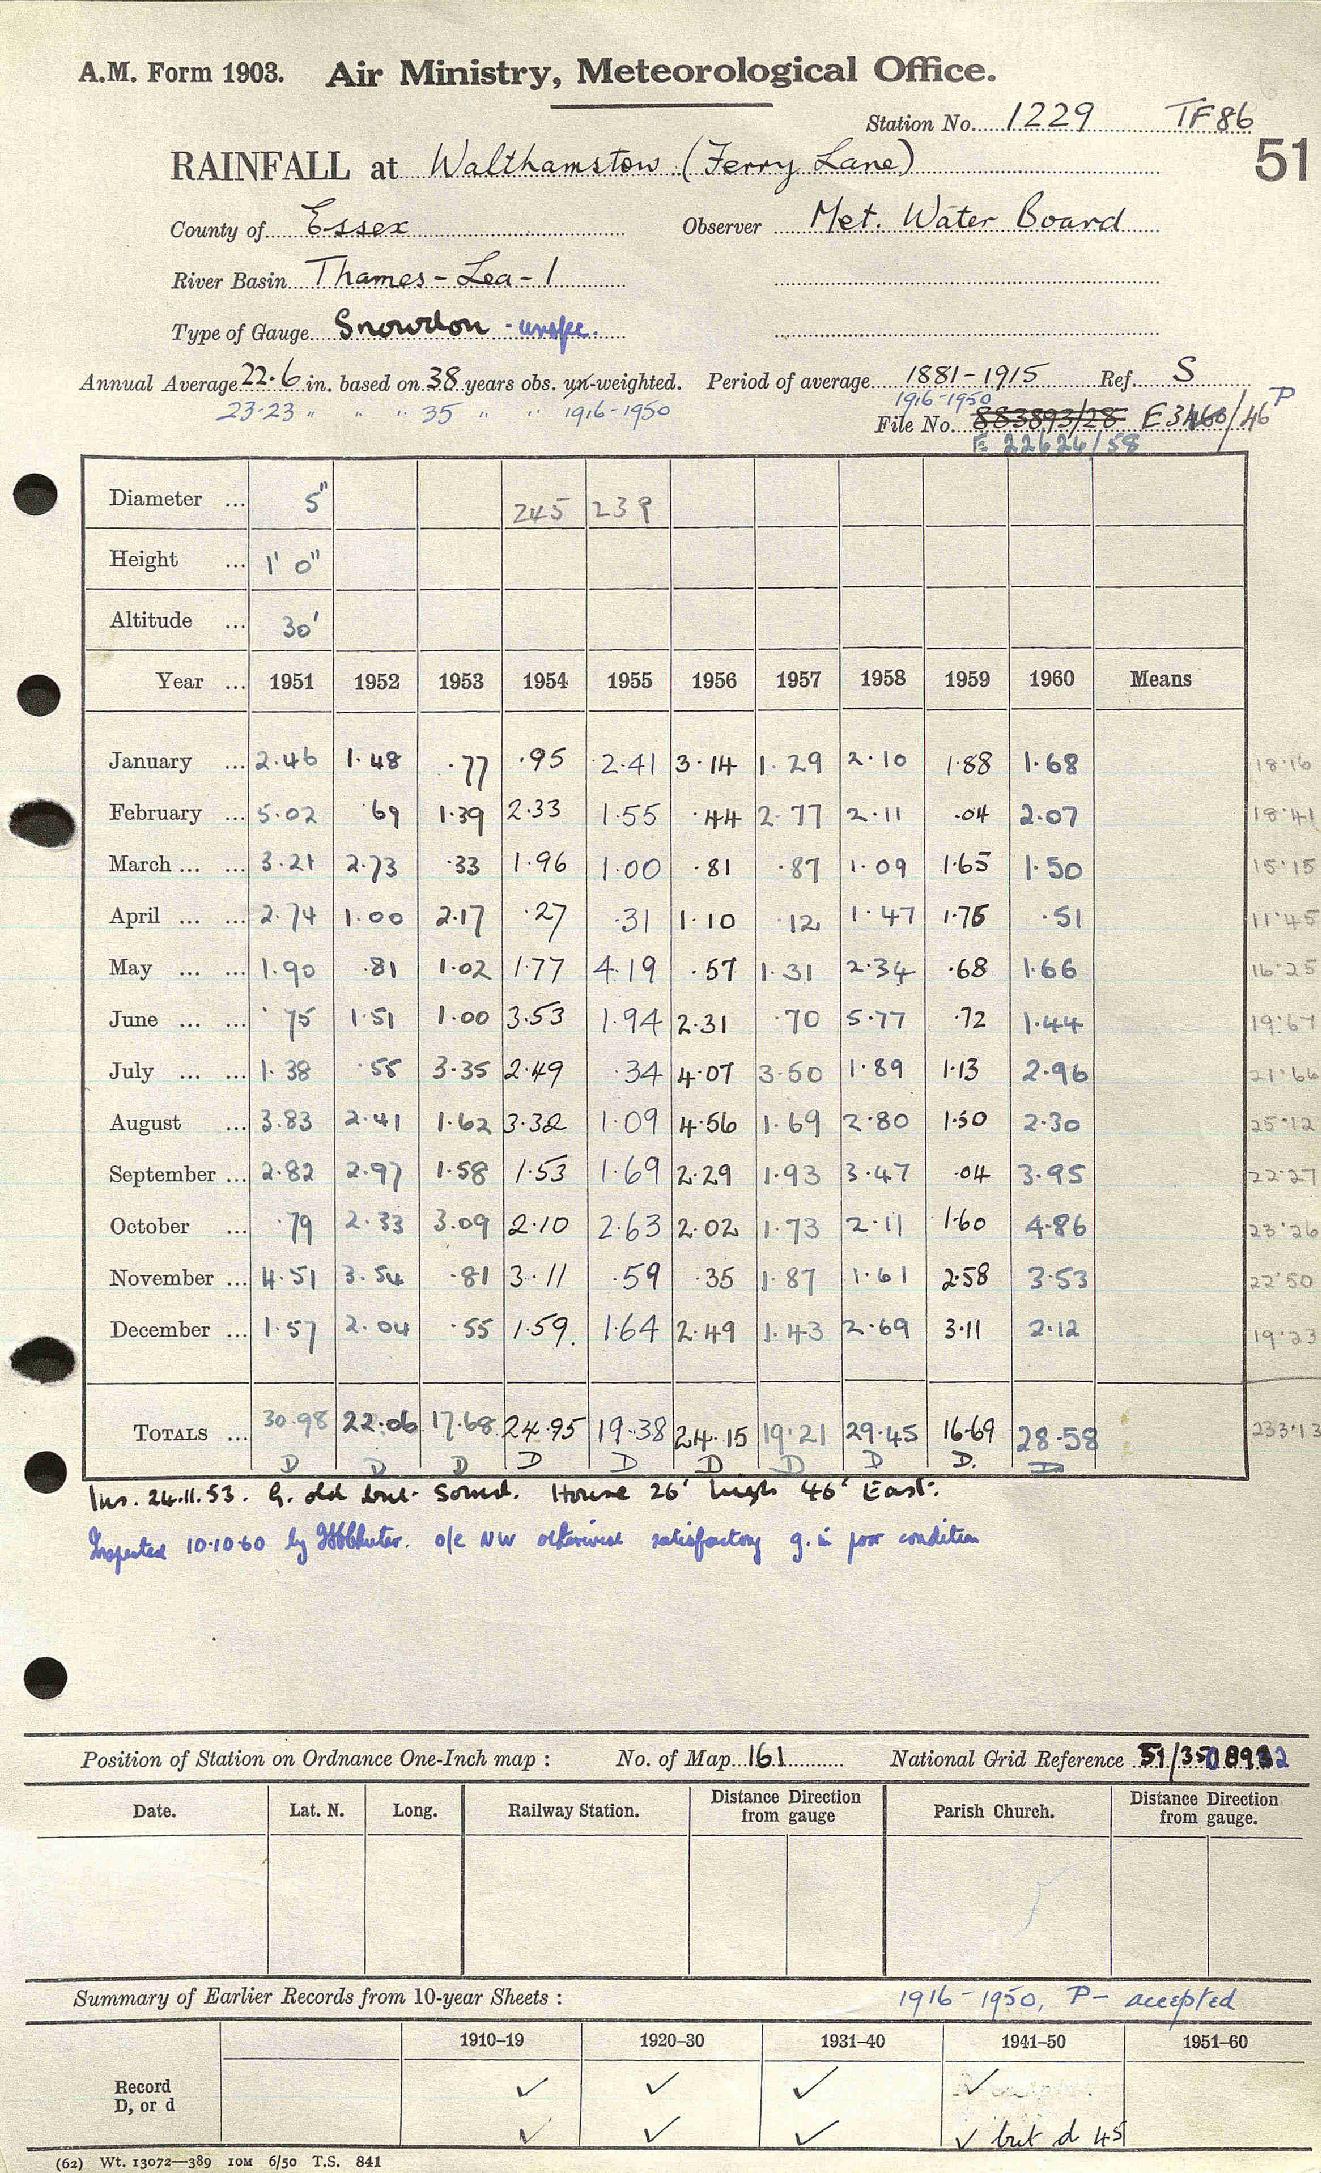 A.M. Form 1903. Air Ministry, Meteorological Office.
Station No. 1229 TF86
RAINFALL at Walthamstow (Ferry Lane) 51
County of Essex Observer Met. Water Board
River Basin Thames - Lea - 1
Type of Gauge Snowdon - unspec.
Annual Average 22.6 in. based on 38 years obs. un-weighted. Period of average 1881-1915 Ref. S
23.23 " " " 35 " " 1916-1950 1916-1950 P
File No. 883893/28 /46
E 22626/58
Diameter ... 5" 245 239
Height ... 1' 0"
Altitude ... 30'
Year ... 1951 1952 1953 1954 1955 1956 1957 1958 1959 1960 Means
January ... 2.46 1.48 .77 .95 2.41 3.14 1.29 2.10 1.88 1.68 18.16
February ... 5.02 69 1.39 2.33 1.55 .44 2.77 2.11 .04 2.07 18.41
March ... ... 3.21 2.73 .33 1.96 1.00 .81 .87 1.09 1.65 1.50 15.15
April ... ... 2.74 1.00 2.17 .27 .31 1.10 .12 1.47 1.76 .51 11.45
May ... ... 1.90 .81 1.02 1.77 4.19 .57 1.31 2.34 .68 1.66 16.25
June ... ... .75 1.51 1.00 3.53 1.94 2.31 .70 5.77 .72 1.44 19.67
July ... ... 1.38 .55 3.35 2.49 .34 4.07 3.50 1.89 1.13 2.96 21.66
August ... 3.83 2.41 1.62 3.32 1.09 4.56 1.69 2.80 1.50 2.30 25.12
September ... 2.82 2.97 1.58 1.53 1.69 2.29 1.93 3.47 .04 3.95 22.27
October ... .79 2.33 3.09 2.10 2.63 2.02 1.73 2.11 1.60 4.86 23.26
November ... 4.51 3.54 .81 3.11 .59 .35 1.87 1.61 2.58 3.53 22.50
December ... 1.57 2.04 .55 1.59. 1.64 2.49 1.43 2.69 3.11 2.12 19.23
TOTALS ... 30.98 22.06 17.68 24.95 19.38 24.15 19.21 29.45 16.69 28.58 233.13
D D D D D D D D D. D
Ins. 24.11.53. G. old but sound. House 26' high 46' East.
Inspected 10.10.60 by o/e NW otherwise satisfactory g. in poor condition
Position of Station on Ordnance One-Inch map : No. of Map 161 National Grid Reference
Date. Lat. N. Long. Railway Station. Distance Direction from gauge Parish Church. Distance Direction from gauge.
Summary of Earlier Records from 10-year Sheets : 1916-1950, P- accepted
1910–19 1920–30 1931–40 1941–50 1951–60
Record ✓ ✓ ✓ ✓
D, or d ✓ ✓ ✓ ✓ but d 45
(62) Wt. 13072—389 10M 6/50 T.S. 841